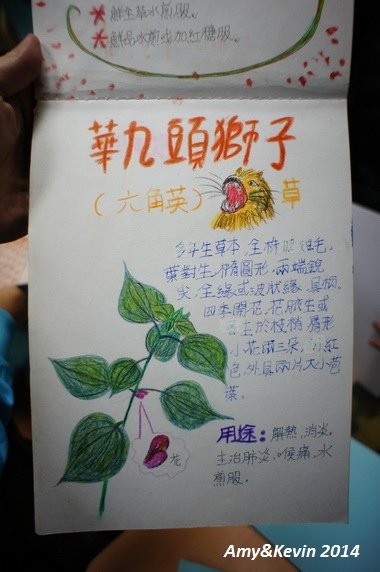 鮮全草水煎服。
鮮品水煎或加紅糖服。
華九頭獅子
(六角英) 草
多年生草本,全株 粗毛,
葉對生,橢圓形,兩端銳
尖,全緣或波狀緣,具柄。
四季開花,花腋生或
生於枝梢,唇形
小花兩三朵,粉紅
色,外具兩片大小苞
葉。
用途:解熱,消炎。
主治肺炎,喉痛,水
煎服。
花
Amy&Kevin 2014